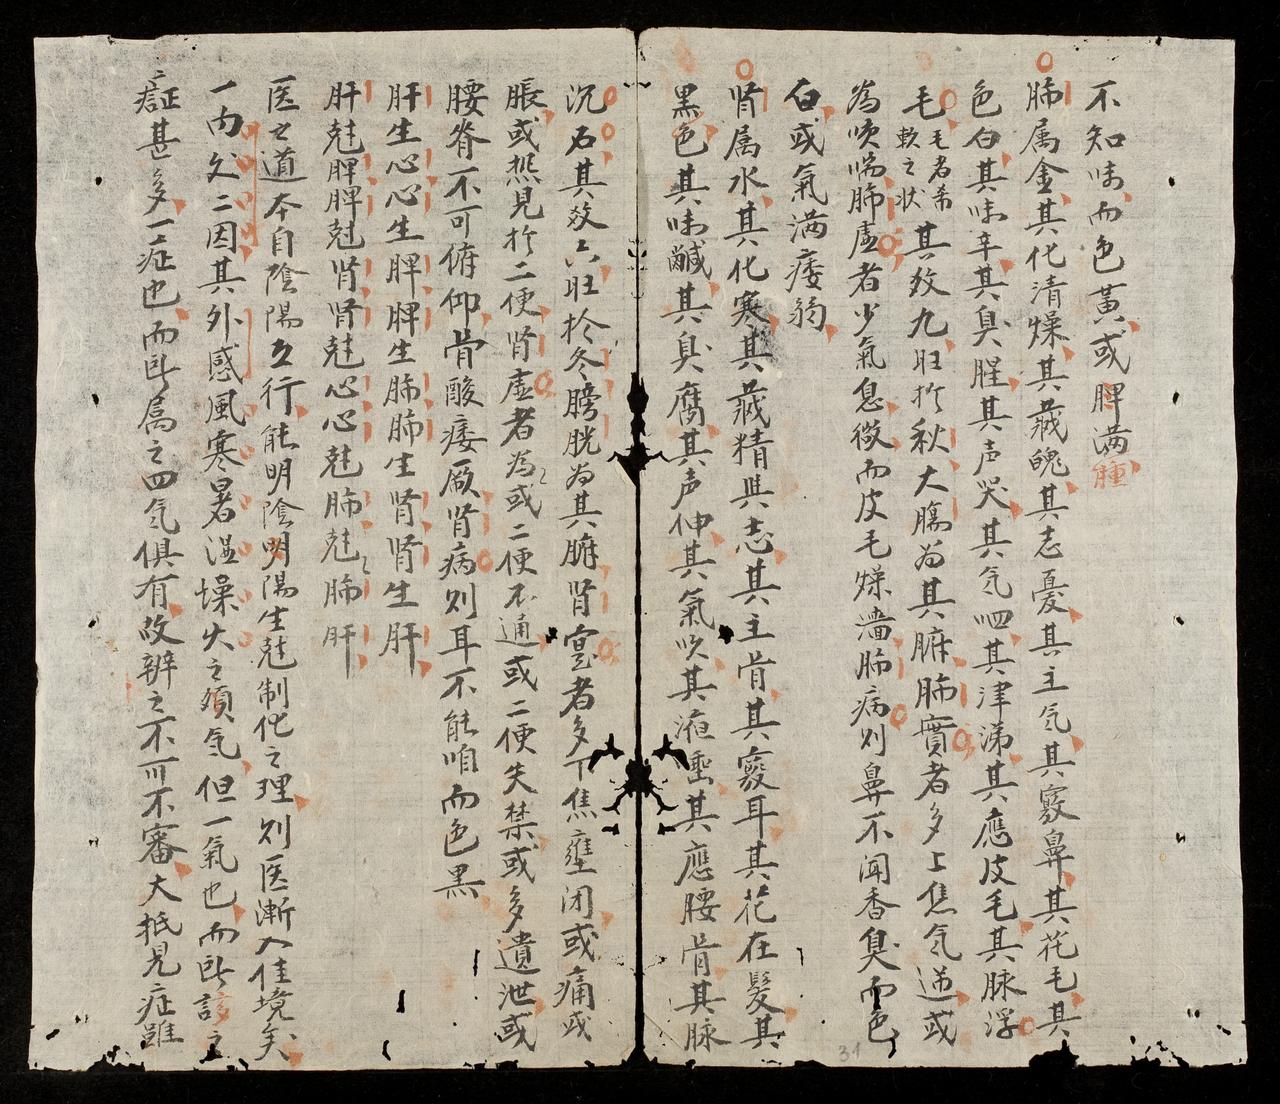 不知味而色黄或脾满腫
肺属金其化清燥其藏魄其志憂其主气其竅鼻其花毛其
色白其味辛其臭腥其声哭其气呬其津涕其應皮毛其脉浮
毛毛者希軟之状其数九旺於秋大腸为其腑肺實者多上焦气逆或
為咳喘肺虚者少氣息微而皮毛燥濇肺病则鼻不闻香臭而色
白或氣满痿弱
肾属水其化寒其藏精與志其主骨其竅耳其花在髮其
黑色其味鹹其臭腐其声伸其氣吹其液唾其應腰骨其脉
沉石其数六旺於冬膀胱为其腑肾實者多下焦壅闭或痛或
脹或热見於二便肾虚者为或二便不通或二便失禁或多遺泄或
腰脊不可俯仰骨酸痿厥肾病则耳不能咱而色黑
肝生心心生脾脾生肺肺生肾肾生肝
肝尅脾脾尅肾肾尅心心尅肺尅肺肝
医之道本自陰陽五行能明陰明陽生尅制化之理则医漸入佳境矣
一内欠二因其外感風寒暑湿燥火之須气但一氣也而此該之
癥甚多一症也而此属之四气俱有故辨之不可不審大抵見症雖
31